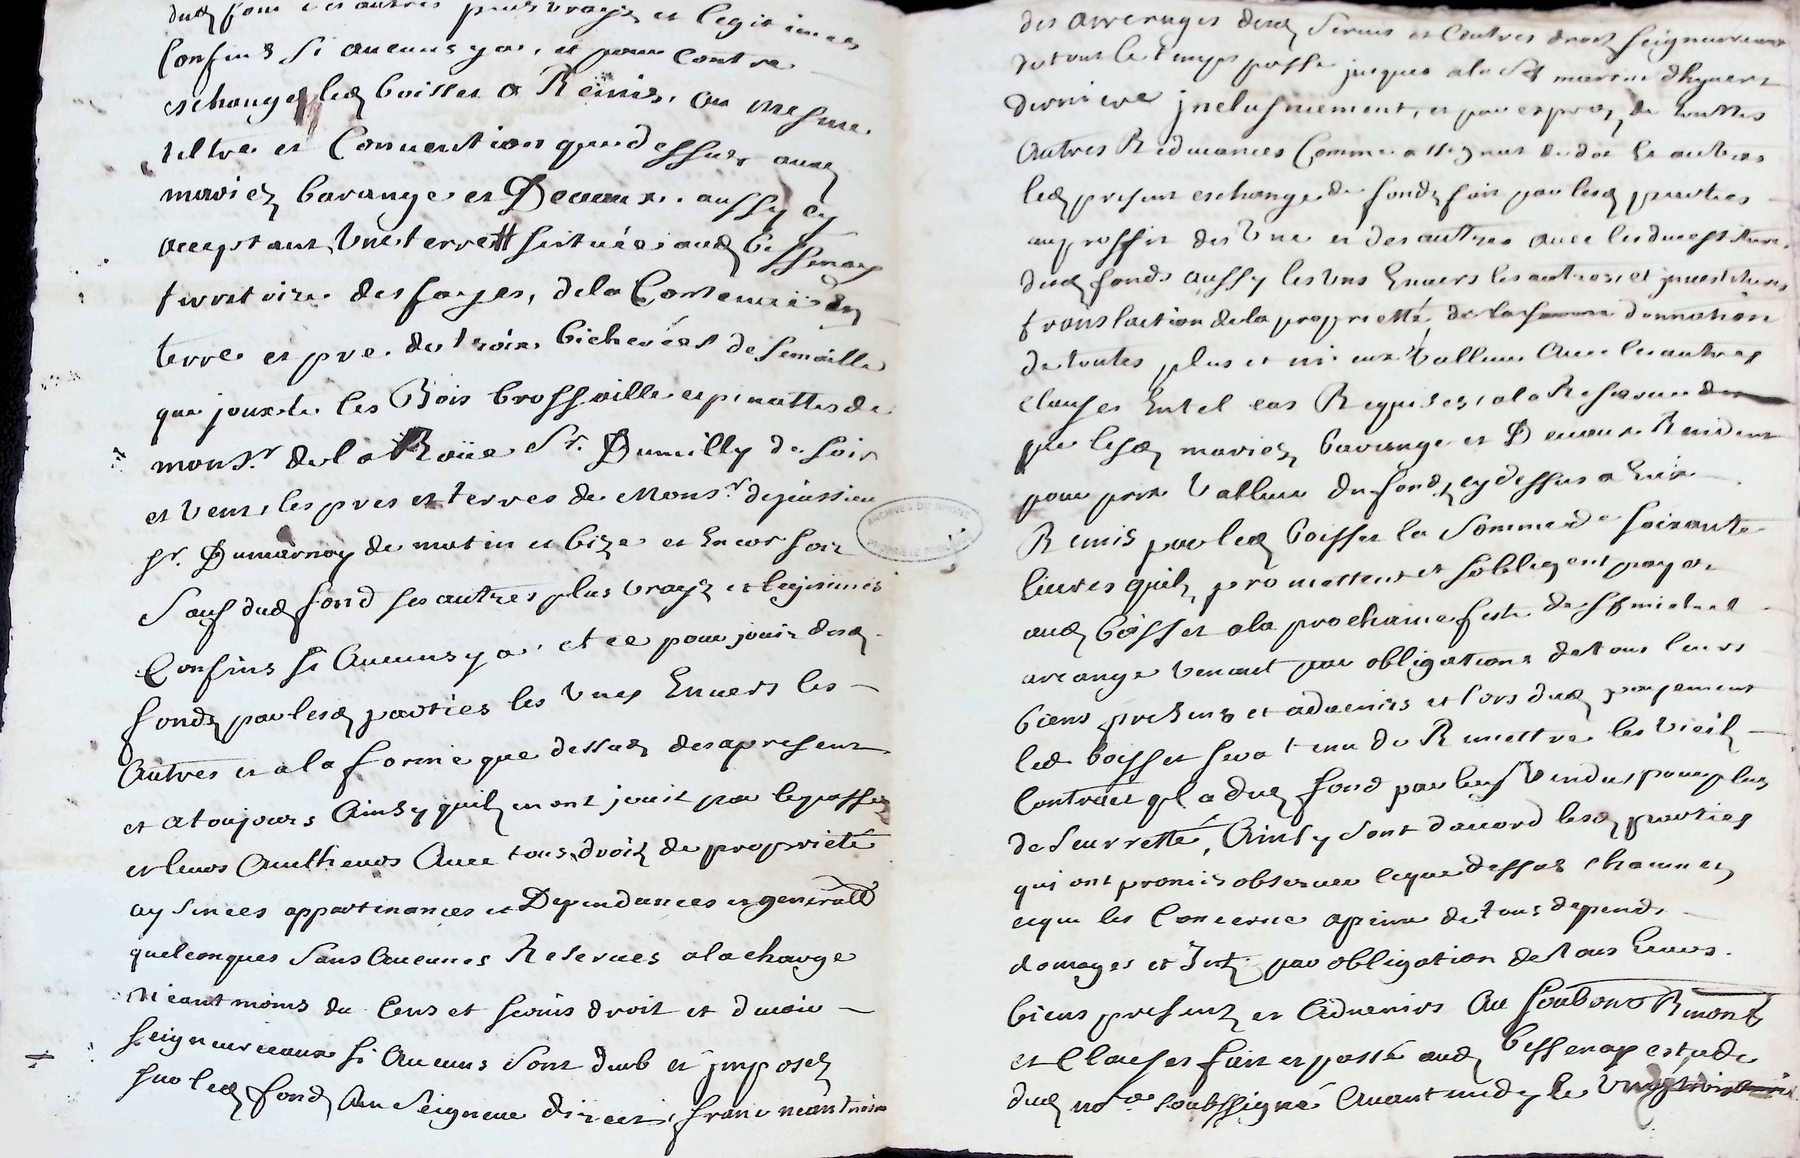 dud fond ses autres plus vrays et legitimes
Confins si aucuns y a, et pour contre
eschange led boisset a Remis, au mesme
tiltre et Convention que dessus aud
mariez barange et Decaux. aussy cy
acceptant, Une terre situéé aud bessenay
territoire des fayes, de la Contenue
terre et pre. de troix bicherées de semaille
que jouxte les Bois brossaille espinattes de
mons.r de la Roüe Sr. Dumilly de soir
et vent, les pres et terres de Mons.r dejussieu
sr. Dumarnay de matin et bize et Encor soir
Sauf dud fond ses autres plus vrayz et legitimes
Confins si Aucuns y a. et ce pour jouir desd
fondz par lesd parties les Unes Envers les
Autres et a la forme que dessus des apresent
et atoujours Ainsy quilz en ont jouit par le passez
et leurs Autheurs Avec tous droitz de proprieté
aysinces appartenances et Dependances en generall
quelconques Sans Aucunes Reserves a la charge
neantmoins du Cens et servis droit et devoir
seigneuriaux si Aucuns sont deub et jmposez
sur led fondz Au Seigneur direct, franc neantmoin
des arrerages desd servis et Autres droitz seigneuriaux
de tout le temps passé jusques a la St martin dhyvert
derniere jnclusivement, et par exprez de touttes
Autres Reduances Comme
led present eschange de fondz fait par lesd parties
au proffit des Une et des autres avec les
desd fonds aussy les Uns Envers les autres, et jnvestitures
translation de la proprietté, de donnation
de toutes plus et mieux Vallue Avec les autres
Clauses En tel cas Requises, a la Reserve
que lesd mariez barange et Decaux
pour prix Vallue du fondz cy dessus a Eux
Remis par led boisset la Somme de soixante
livres quilz promettent et sobligent payer
aud boisset a la prochaine feste de St michel
arcange venant par obligations de tous leurs
biens presens et advenirs et lors dud payement
led boisset sera tenu de Remettre les vieilz
Contract qil a dud fond par luy Vendus pour plus
de seurretté, Ainsy sont dacord lesd parties
qui ont promis observer ce que dessus chacun en
ce que les Concerne apeine de tous depends
domages et Intz par obligation de tous leurs
biens presentz et Advenirs Au
et Clauses fait et passé aud bessenay estude
dud no.re soubssigné Avant midy le